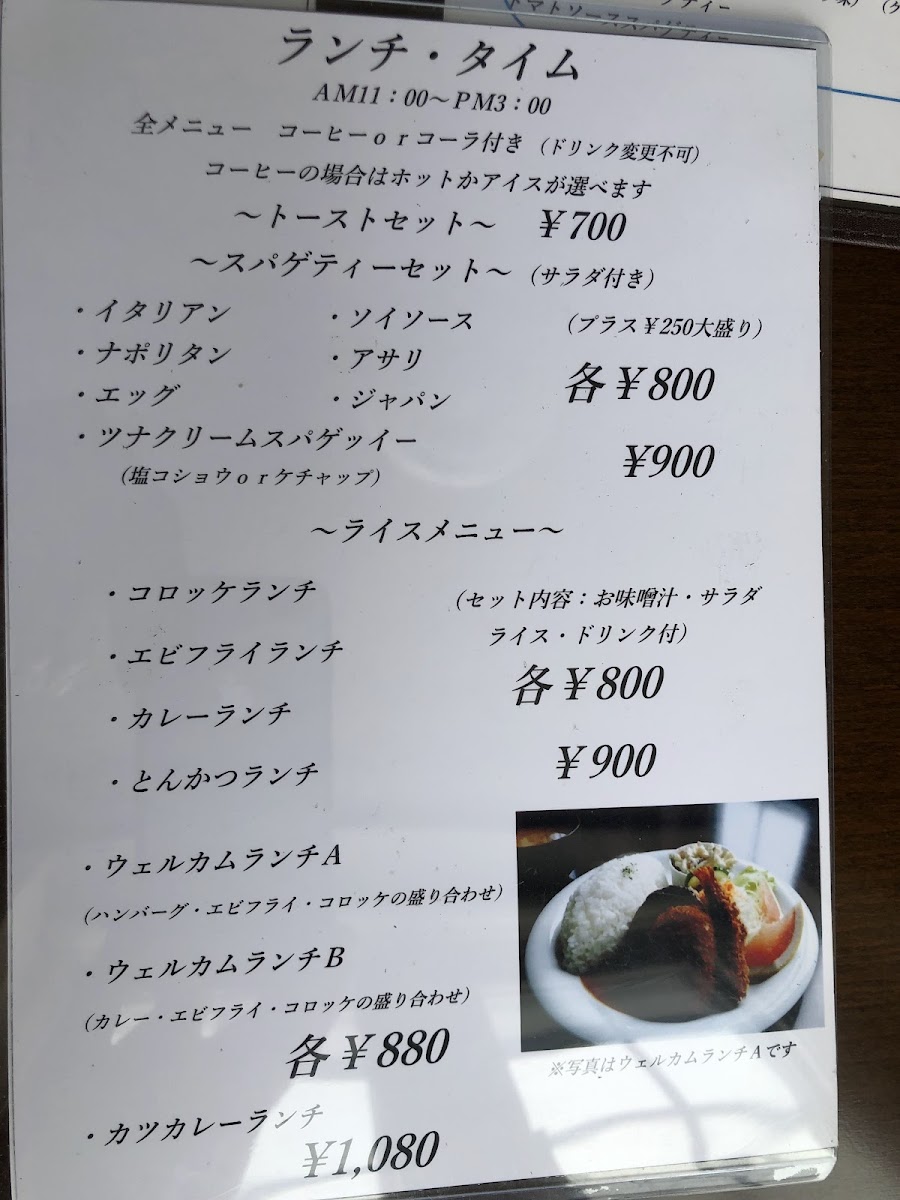 トマトソーススパゲティー
ランチ・タイム
AM11：00～PM3：00
全メニュー　コーヒーorコーラ付き（ドリンク変更不可）
コーヒーの場合はホットかアイスが選べます
～トーストセット～　¥700
～スパゲティーセット～（サラダ付き）
・イタリアン　・ソイソース　（プラス¥250大盛り）
・ナポリタン　・アサリ　各¥800
・エッグ　・ジャパン
・ツナクリームスパゲッイー　¥900
（塩コショウorケチャップ）
～ライスメニュー～
・コロッケランチ　（セット内容：お味噌汁・サラダ
ライス・ドリンク付）
・エビフライランチ　各¥800
・カレーランチ
・とんかつランチ　¥900
・ウェルカムランチA
（ハンバーグ・エビフライ・コロッケの盛り合わせ）
・ウェルカムランチB
（カレー・エビフライ・コロッケの盛り合わせ）
各¥880
※写真はウェルカムランチAです
・カツカレーランチ
¥1,080